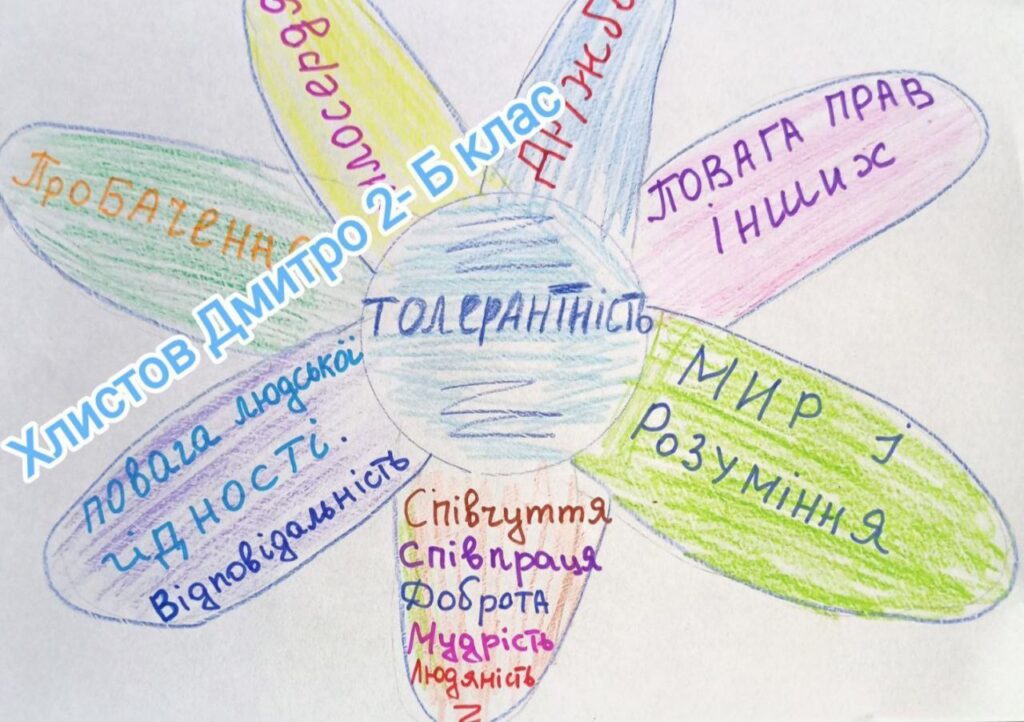 Дружб
ПОВАГА ПРАВ
ІНШИХ
ПроБАчення
Хлистов Дмитро 2- Б клас
ТОЛЕРАНТНІСТЬ
МИР і
Розуміння
повага людської
гідності.
Відповідальність
Співчуття
Співпраця
Доброта
Мудрість
Людяність